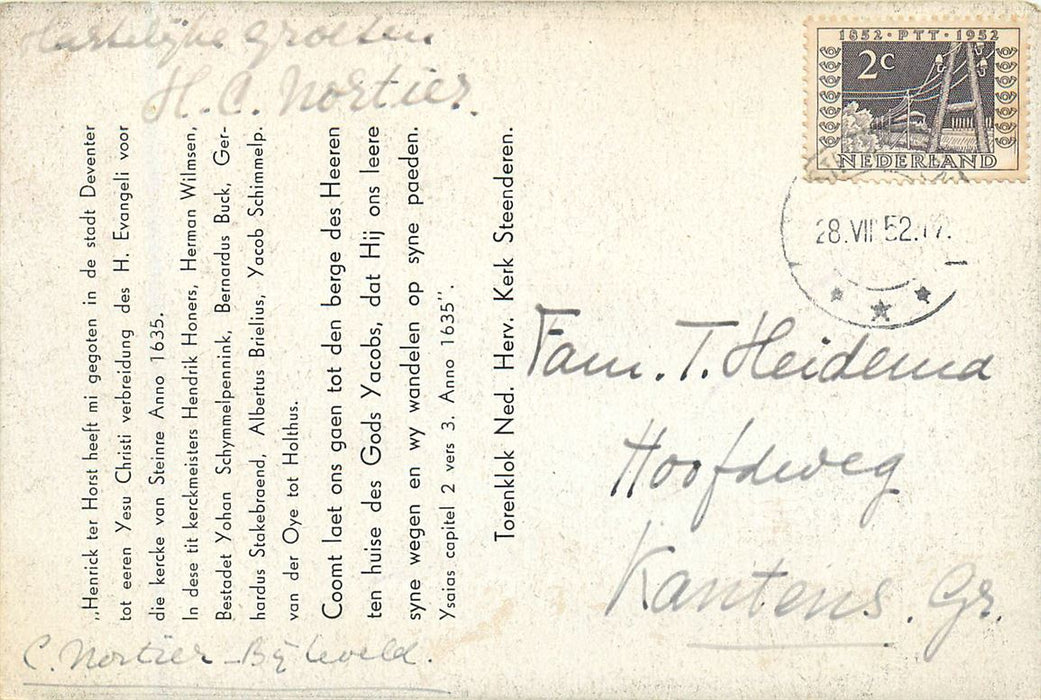 Hartelijke groeten
H. C. Nortier.
„Henrick ter Horst heeft mi gegoten in de stadt Deventer
tot eeren Yesu Christi verbreidung des H. Evangeli voor
die kercke van Steinre Anno 1635.
In dese tit kerckmeisters Hendrik Honers, Herman Wilmsen,
Bestadet Yohan Schymmelpennink, Bernardus Buck, Ger-
hardus Stakebraend, Albertus Brielius, Yacob Schimmelp.
van der Oye tot Holthus.
Coomt laet ons gaen tot den berge des Heeren
ten huise des Gods Yacobs, dat Hij ons leere
syne wegen en wy wandelen op syne paeden.
Ysaias capitel 2 vers 3. Anno 1635”.
Torenklok Ned. Herv. Kerk Steenderen.
C. Nortier-Bijleveld.
1852·PTT·1952
2c
NEDERLAND
28.VII 52.17.
Fam. T. Heidema
Hoofdweg
Kantens. Gr.